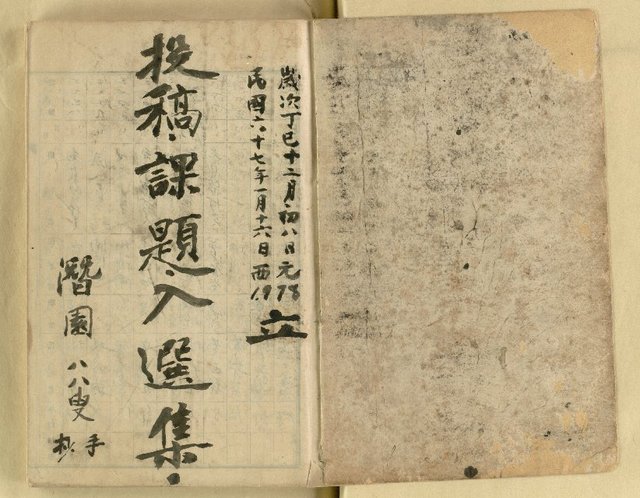 歲次丁巳十二月初八日元78
民國六十七年一月十六日西19
立
投稿課題入選集
潛園 八八叟
手抄